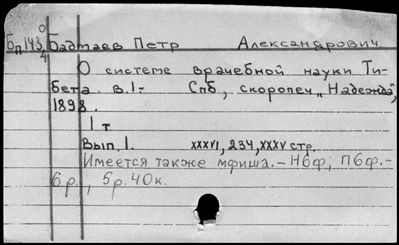 Бп 143 0/4 Бадмаев Петр Александрович
О системе врачебной науки Ти-
бета. в. 1.- Спб, скоропеч „Надежда",
1898.
1 т
Вып. 1. XXXVI, 234, XXXV стр.
Имеется также мфиша.- Н6ф; П6ф.-
6р., 5р. 40к.